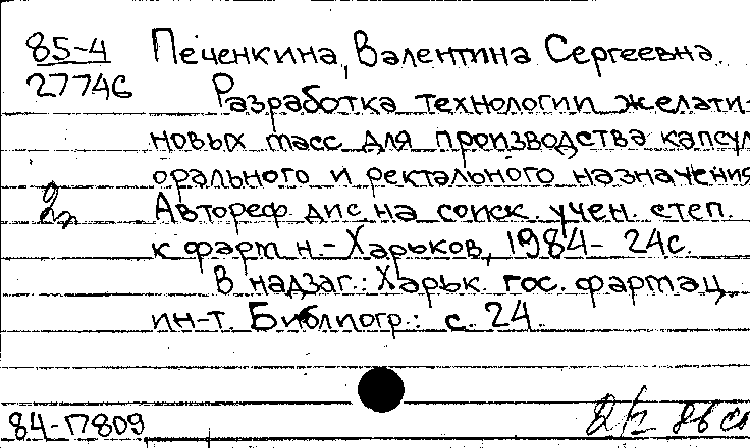 85-4 Печенкина, Валентина Сергеевна.
27746
Разработка технологии желати-
новых масс для производства капсул
орального и ректального назначения
Автореф. дис на соиск. учен. степ.
к фарм н. - Харьков, 1984 - 24с.
В надзаг.: Харьк. гос. фармац.
ин-т. Библиогр.: с. 24.
84-17809